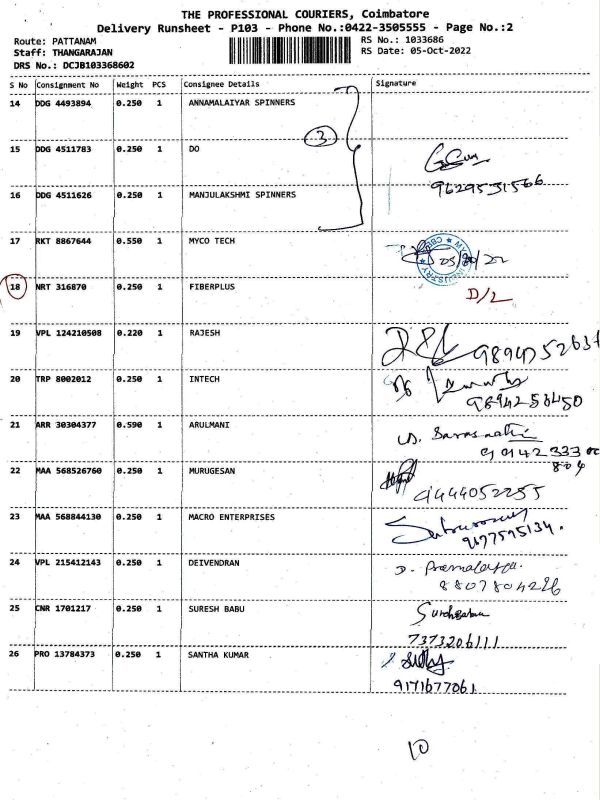 THE PROFESSIONAL COURIERS, Coimbatore
Delivery Runsheet - P103 - Phone No.:0422-3505555 - Page No.:2
Route: PATTANAM
RS No.: 1033686
Staff: THANGARAJAN
RS Date: 05-Oct-2022
DRS No.: DCJB103368602
S No Consignment No Weight PCS Consignee Details Signature
14 DDG 4493894 0.250 1 ANNAMALAIYAR SPINNERS
3
15 DDG 4511783 0.250 1 DO
9629531566
16 DDG 4511626 0.250 1 MANJULAKSHMI SPINNERS
17 RKT 8867644 0.550 1 MYCO TECH
18 NRT 316870 0.250 1 FIBERPLUS
D/L
19 VPL 124210508 0.220 1 RAJESH
20 TRP 8002012 0.250 1 INTECH
9894256450
21 ARR 30304377 0.590 1 ARULMANI
22 MAA 568526760 0.250 1 MURUGESAN
9444052255
23 MAA 568844130 0.250 1 MACRO ENTERPRISES
9677595134.
24 VPL 215412143 0.250 1 DEIVENDRAN
8807804226
25 CNR 1701217 0.250 1 SURESH BABU
7373206111
26 PRO 13784373 0.250 1 SANTHA KUMAR
9171677061
10